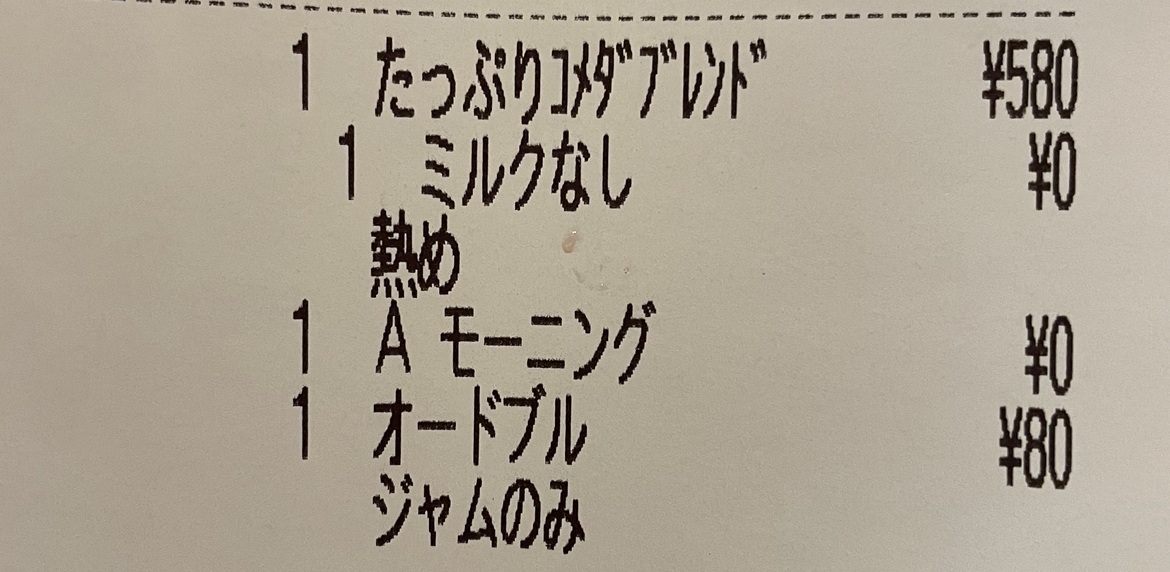 1 たっぷりｺﾒﾀﾞﾌﾞﾚﾝﾄﾞ ¥580
1 ミルクなし ¥0
熱め
1 A モーニング ¥0
1 オードブル ¥80
ジャムのみ